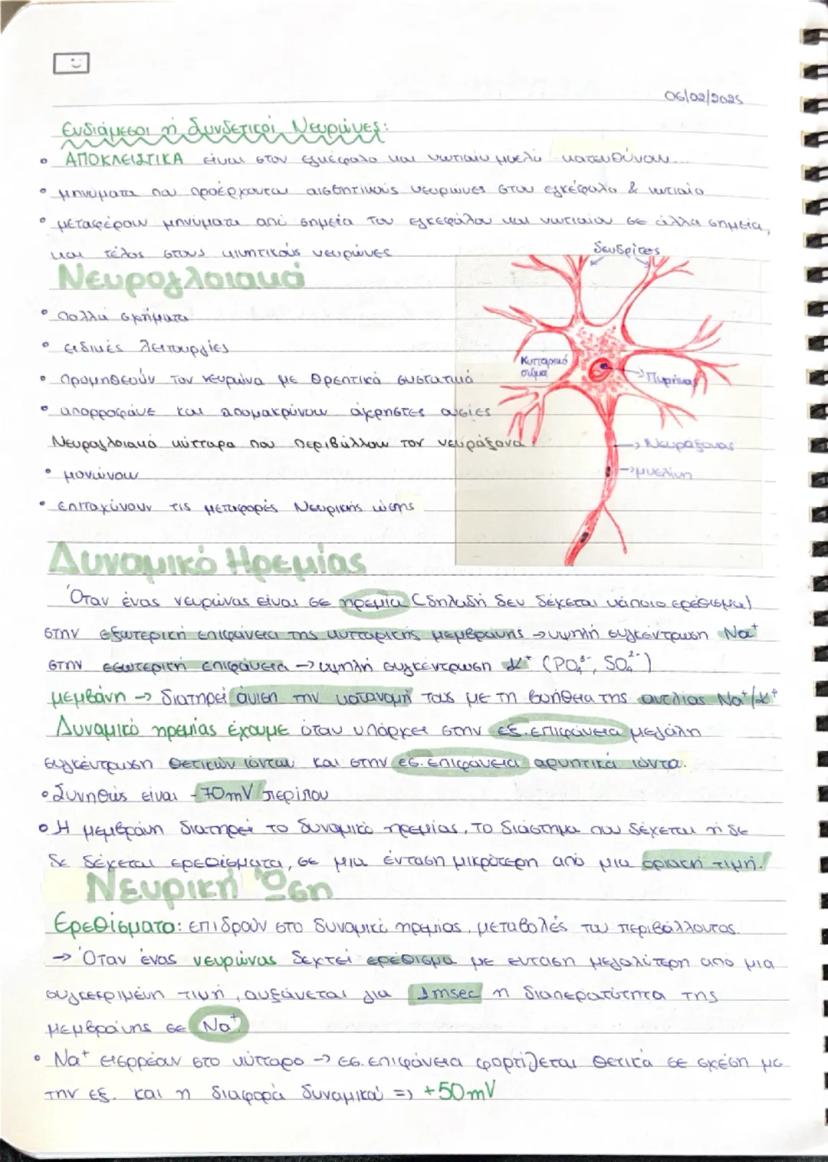 06/02/2025
Ενδιάμεσοι ή Συνδετικοί Νευρώνες:
• ΑΠΟΚΛΕΙΣΤΙΚΑ είναι στον εγκέφαλο και νωτιαίο μυελό κατευθύνουν...
• μηνύματα που προέρχονται αισθητικούς νευρώνες στον εγκέφαλο & νωτιαίο
• μεταφέρουν μηνύματα από σημεία του εγκεφάλου και νωτιαίου σε άλλα σημεία,
και τέλος στους κινητικούς νευρώνες
δενδρίτες
Νευρογλοιακά
• πολλά σχήματα
• ειδικές λειτουργίες
Κυτταρικό
σώμα
→Πυρήνας
• προμηθεύουν τον νευρώνα με θρεπτικά συστατικά
• απορροφάνε και απομακρύνουν άχρηστες ουσίες
Νευρογλοιακά κύτταρα που περιβάλλουν τον νευράξονα
→Νευράξονας
• μονώνουν
→μυελίνη
• επιταχύνουν τις μεταφορές Νευρικής ώσης
Δυναμικό Ηρεμίας
Όταν ένας νευρώνας είναι σε ηρεμία (δηλαδή δεν δέχεται κάποιο ερέθισμα)
στην εξωτερική επιφάνεια της κυτταρικής μεμβράνης → υψηλή συγκέντρωση Na⁺
στην εσωτερική επιφάνεια → υψηλή συγκέντρωση K⁺ (PO₄³⁻, SO₄²⁻)
μεμβάνη → διατηρεί άνιση την κατανομή τους με τη βοήθεια της αντλίας Na⁺/K⁺
Δυναμικό ηρεμίας έχουμε όταν υπάρχει στην εξ. επιφάνεια μεγάλη
συγκέντρωση θετικών ιόντων και στην εσ. επιφάνεια αρνητικά ιόντα.
• Συνήθως είναι -70mV περίπου
• Η μεμβράνη διατηρεί το δυναμικό ηρεμίας, το διάστημα που δέχεται ή δε
δε δέχεται ερεθίσματα, σε μια ένταση μικρότερη από μια οριακή τιμή!
Νευρική Ώση
Ερεθίσματα: επιδρούν στο δυναμικό ηρεμίας, μεταβολές του περιβάλλοντος.
→ Όταν ένας νευρώνας δεχτεί ερέθισμα με ένταση μεγαλύτερη από μια
συγκεκριμένη τιμή, αυξάνεται για 1msec η διαπερατότητα της
μεμβράνης σε Na⁺
• Na⁺ εισρρέαν στο κύτταρο → εσ. επιφάνεια φορτίζεται θετικά σε σχέση με
την εξ. και η διαφορά δυναμικού => +50mV